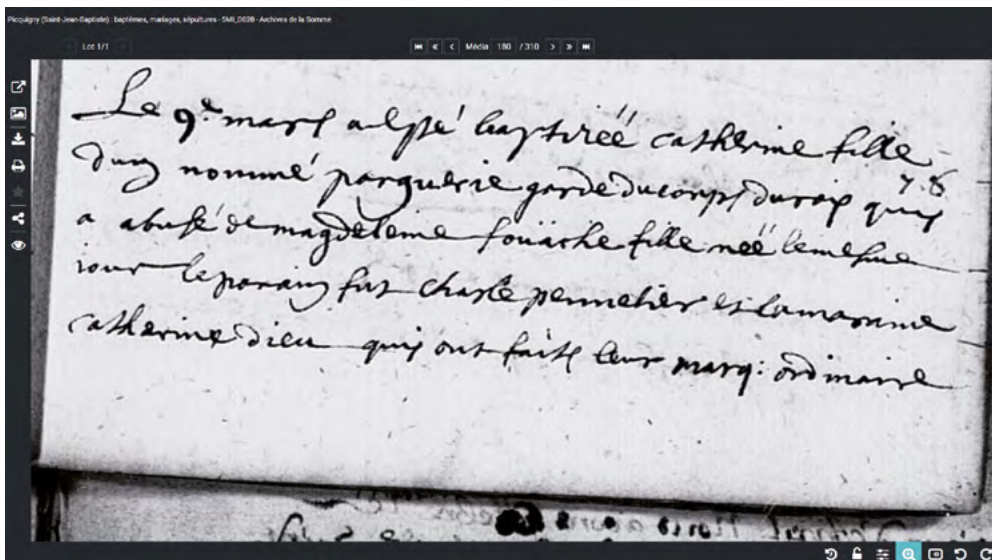 Picquigny (Saint-Jean-Baptiste) : baptêmes, mariages, sépultures - 5MI_D028 - Archives de la Somme
Lot 1/1
Média 180 / 310
Le 9.e mars a esté baptizéé catherine fille
dung nommé parguerie garde du corps du roix quis
a abusé de magdeleine fouache fille néé le mesme
iour le parain fut charle pennetier et la maraine
catherine dieu quis ont faits leur marq: ordinaire